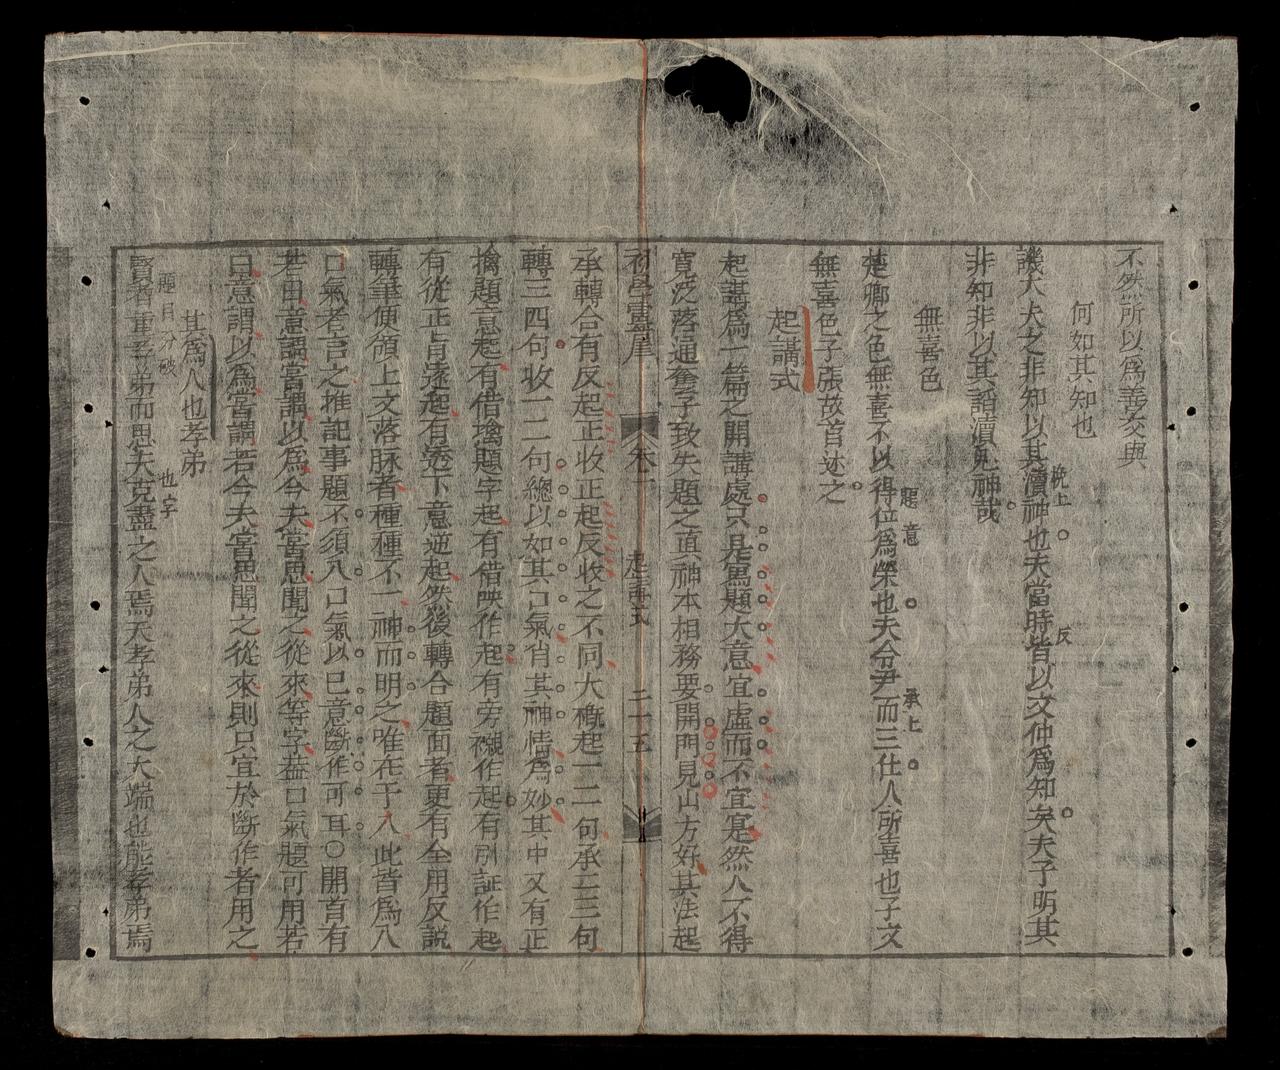 不然所以為善交與
何如其知也
譏大夫之非知以其瀆神也夫當時皆以文仲為知矣夫子明其
挽上
反
非知非以其謟瀆鬼神哉
無喜色
楚卿之色無喜不以得位為榮也夫令尹而三仕人所喜也子文
題意
承上
無喜色子張故首述之
起講式
起講為一篇之開講處只是寫題大意宜虛而不宜寔然人不得
寬泛落通套子致失題之真神本相務要開門見山方好其法起
初學靈犀
卷一
起講式
二十五
承轉合有反起正收正起反收之不同大槪起一二句承二三句
轉三四句收一二句總以如其口氣肖其神情為妙其中又有正
擒題意起有借擒題字起有借映作起有旁襯作起有引証作起
有從正旨遠起有透下意逆起然後轉合題面者更有全用反説
轉筆便領上文落脉者種種不一神而明之唯在于人此皆為入
口氣者言之推記事題不須入口氣以巳意斷作可耳〇開首有
若曰意謂嘗謂以為今夫嘗思聞之從來等字葢口氣題可用若
曰意謂以為嘗謂若今夫嘗思聞之從來則只宜於斷作者用之
其為人也孝弟
題目分破
也字
賢者重孝弟而思夫克盡之人焉夫孝弟人之大端也能孝弟焉